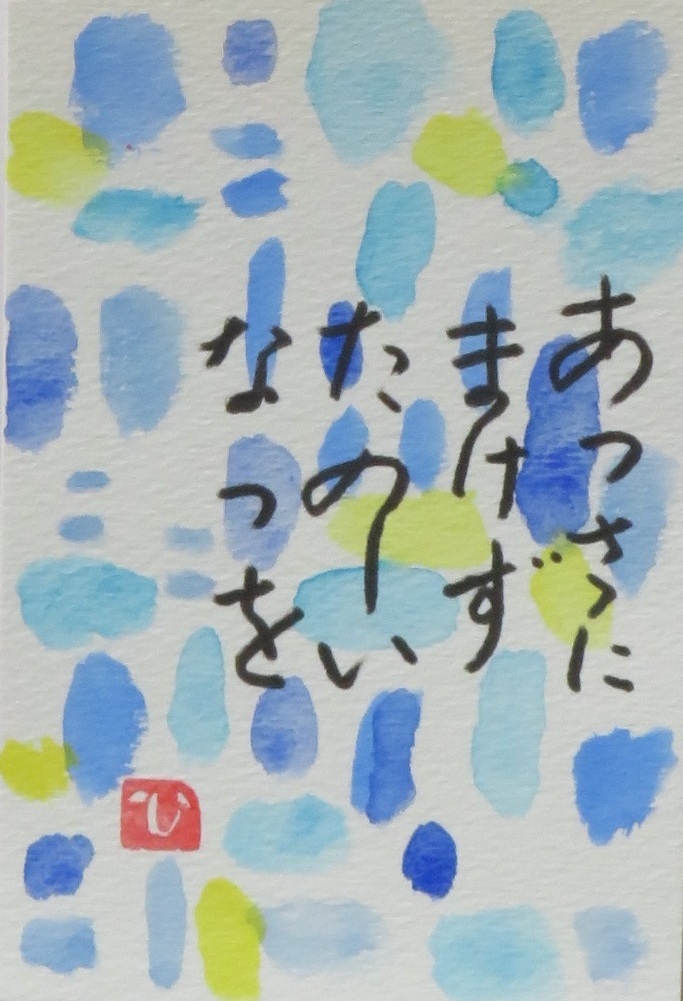 あつさに
まけず
たのしい
なつを
ひ